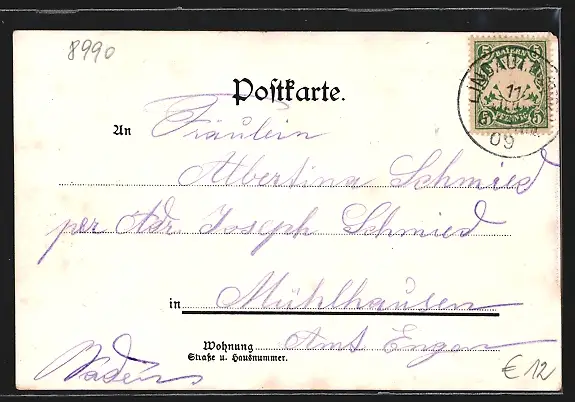 8990
5 BAYERN 5
5 PFENNIG 5
LINDAU
11
09
Postkarte.
An Fräulein
Albertina Schmied
per Adr. Joseph Schmied
in Mühlhausen
Wohnung Amt Engen
Straße u. Hausnummer.
Baden
€ 12